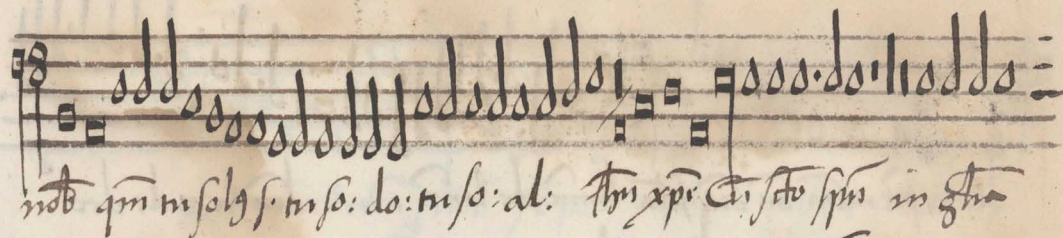 nob̄ qm̄ tu solꝰ s. tu so: do: tu so: al: Jh̄u xp̄e Cū sc̄to sp̄u in gl̄ia